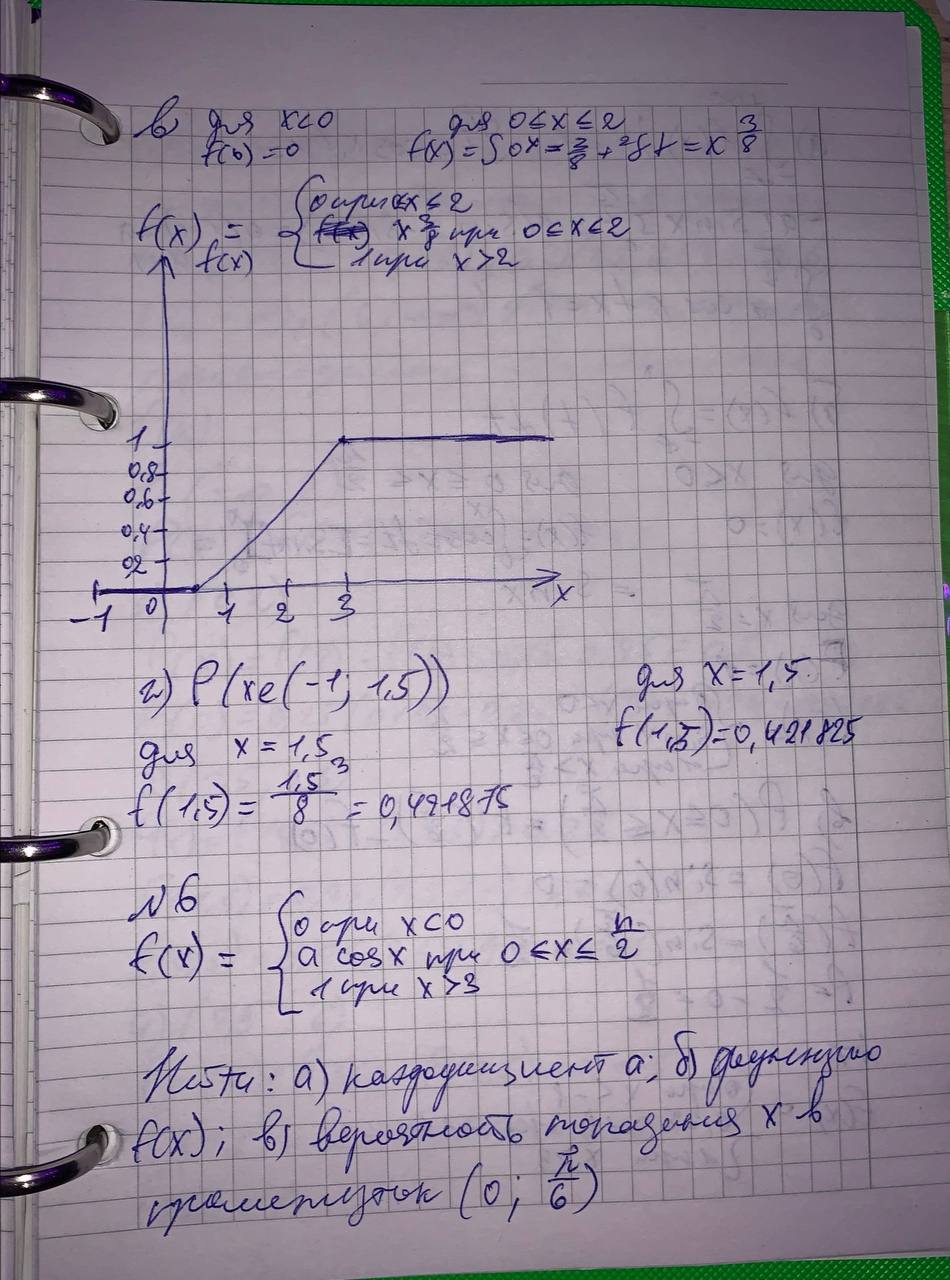 в для x<0 для 0≤x≤2
f(0)=0 f(x)=∫0x=3/8+²∫t=x 3/8
0 при x≤2
f(x) = x 3/8 при 0≤x≤2
f(x) 1 при x>2
1
0,8
0,6
0,4
02
-1 0 1 2 3 x
г) P(xe(-1; 1,5)) для x=1,5.
для x=1,5 f(1,5)=0,421825
f(1,5)=1,5³/8=0,421875
№6
0 при x<0
f(x)= a cosx при 0≤x≤п/2
1 при x>3
Найти: а) коэффициент а; б) функцию
f(x); в) вероятность попадения x в
промежуток (0; п/6)